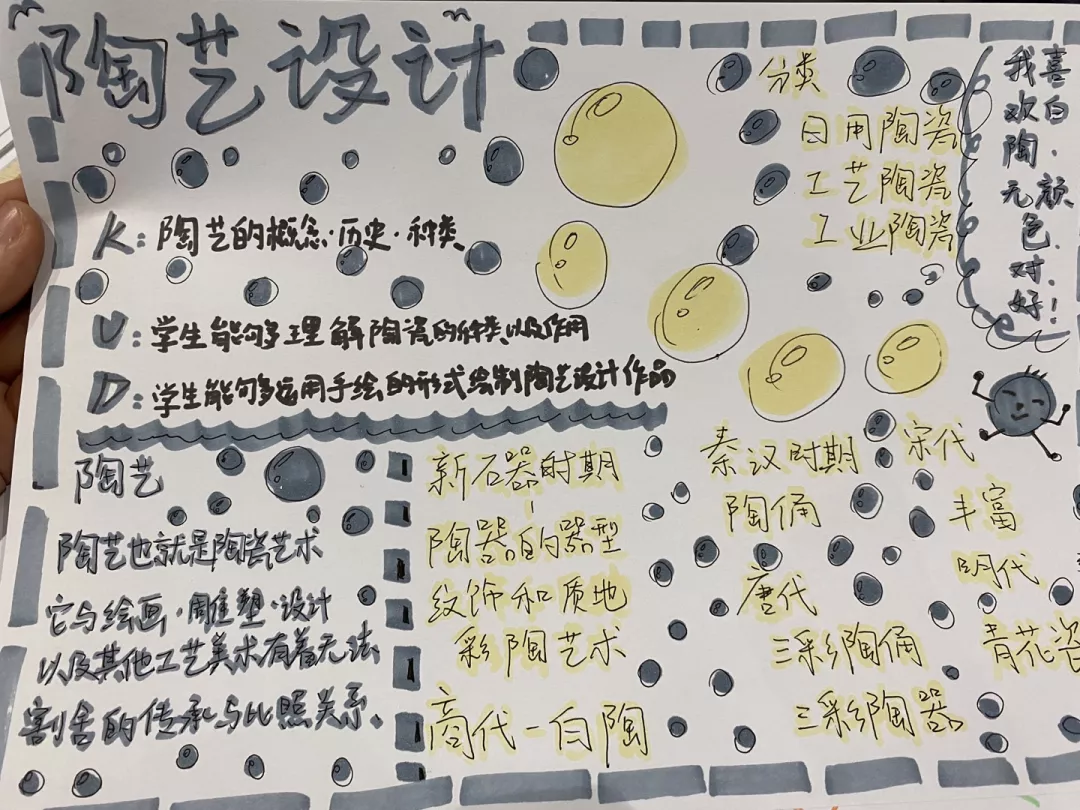 陶艺设计
K：陶艺的概念·历史·种类
U：学生能够理解陶瓷的种类以及作用
D：学生能够运用手绘的形式绘制陶艺设计作品
分类
日用陶瓷
工艺陶瓷
工业陶瓷
我喜
欢白
陶·
无颜
色.
对.
好！
陶艺
陶艺也就是陶瓷艺术
它与绘画·雕塑·设计
以及其他工艺美术有着无法
割舍的传承与比照关系、
新石器时期
陶器的器型
纹饰和质地
彩陶艺术
商代-白陶
秦汉时期
陶俑
唐代
三彩陶俑
三彩陶器
宋代
丰富
明代
青花瓷